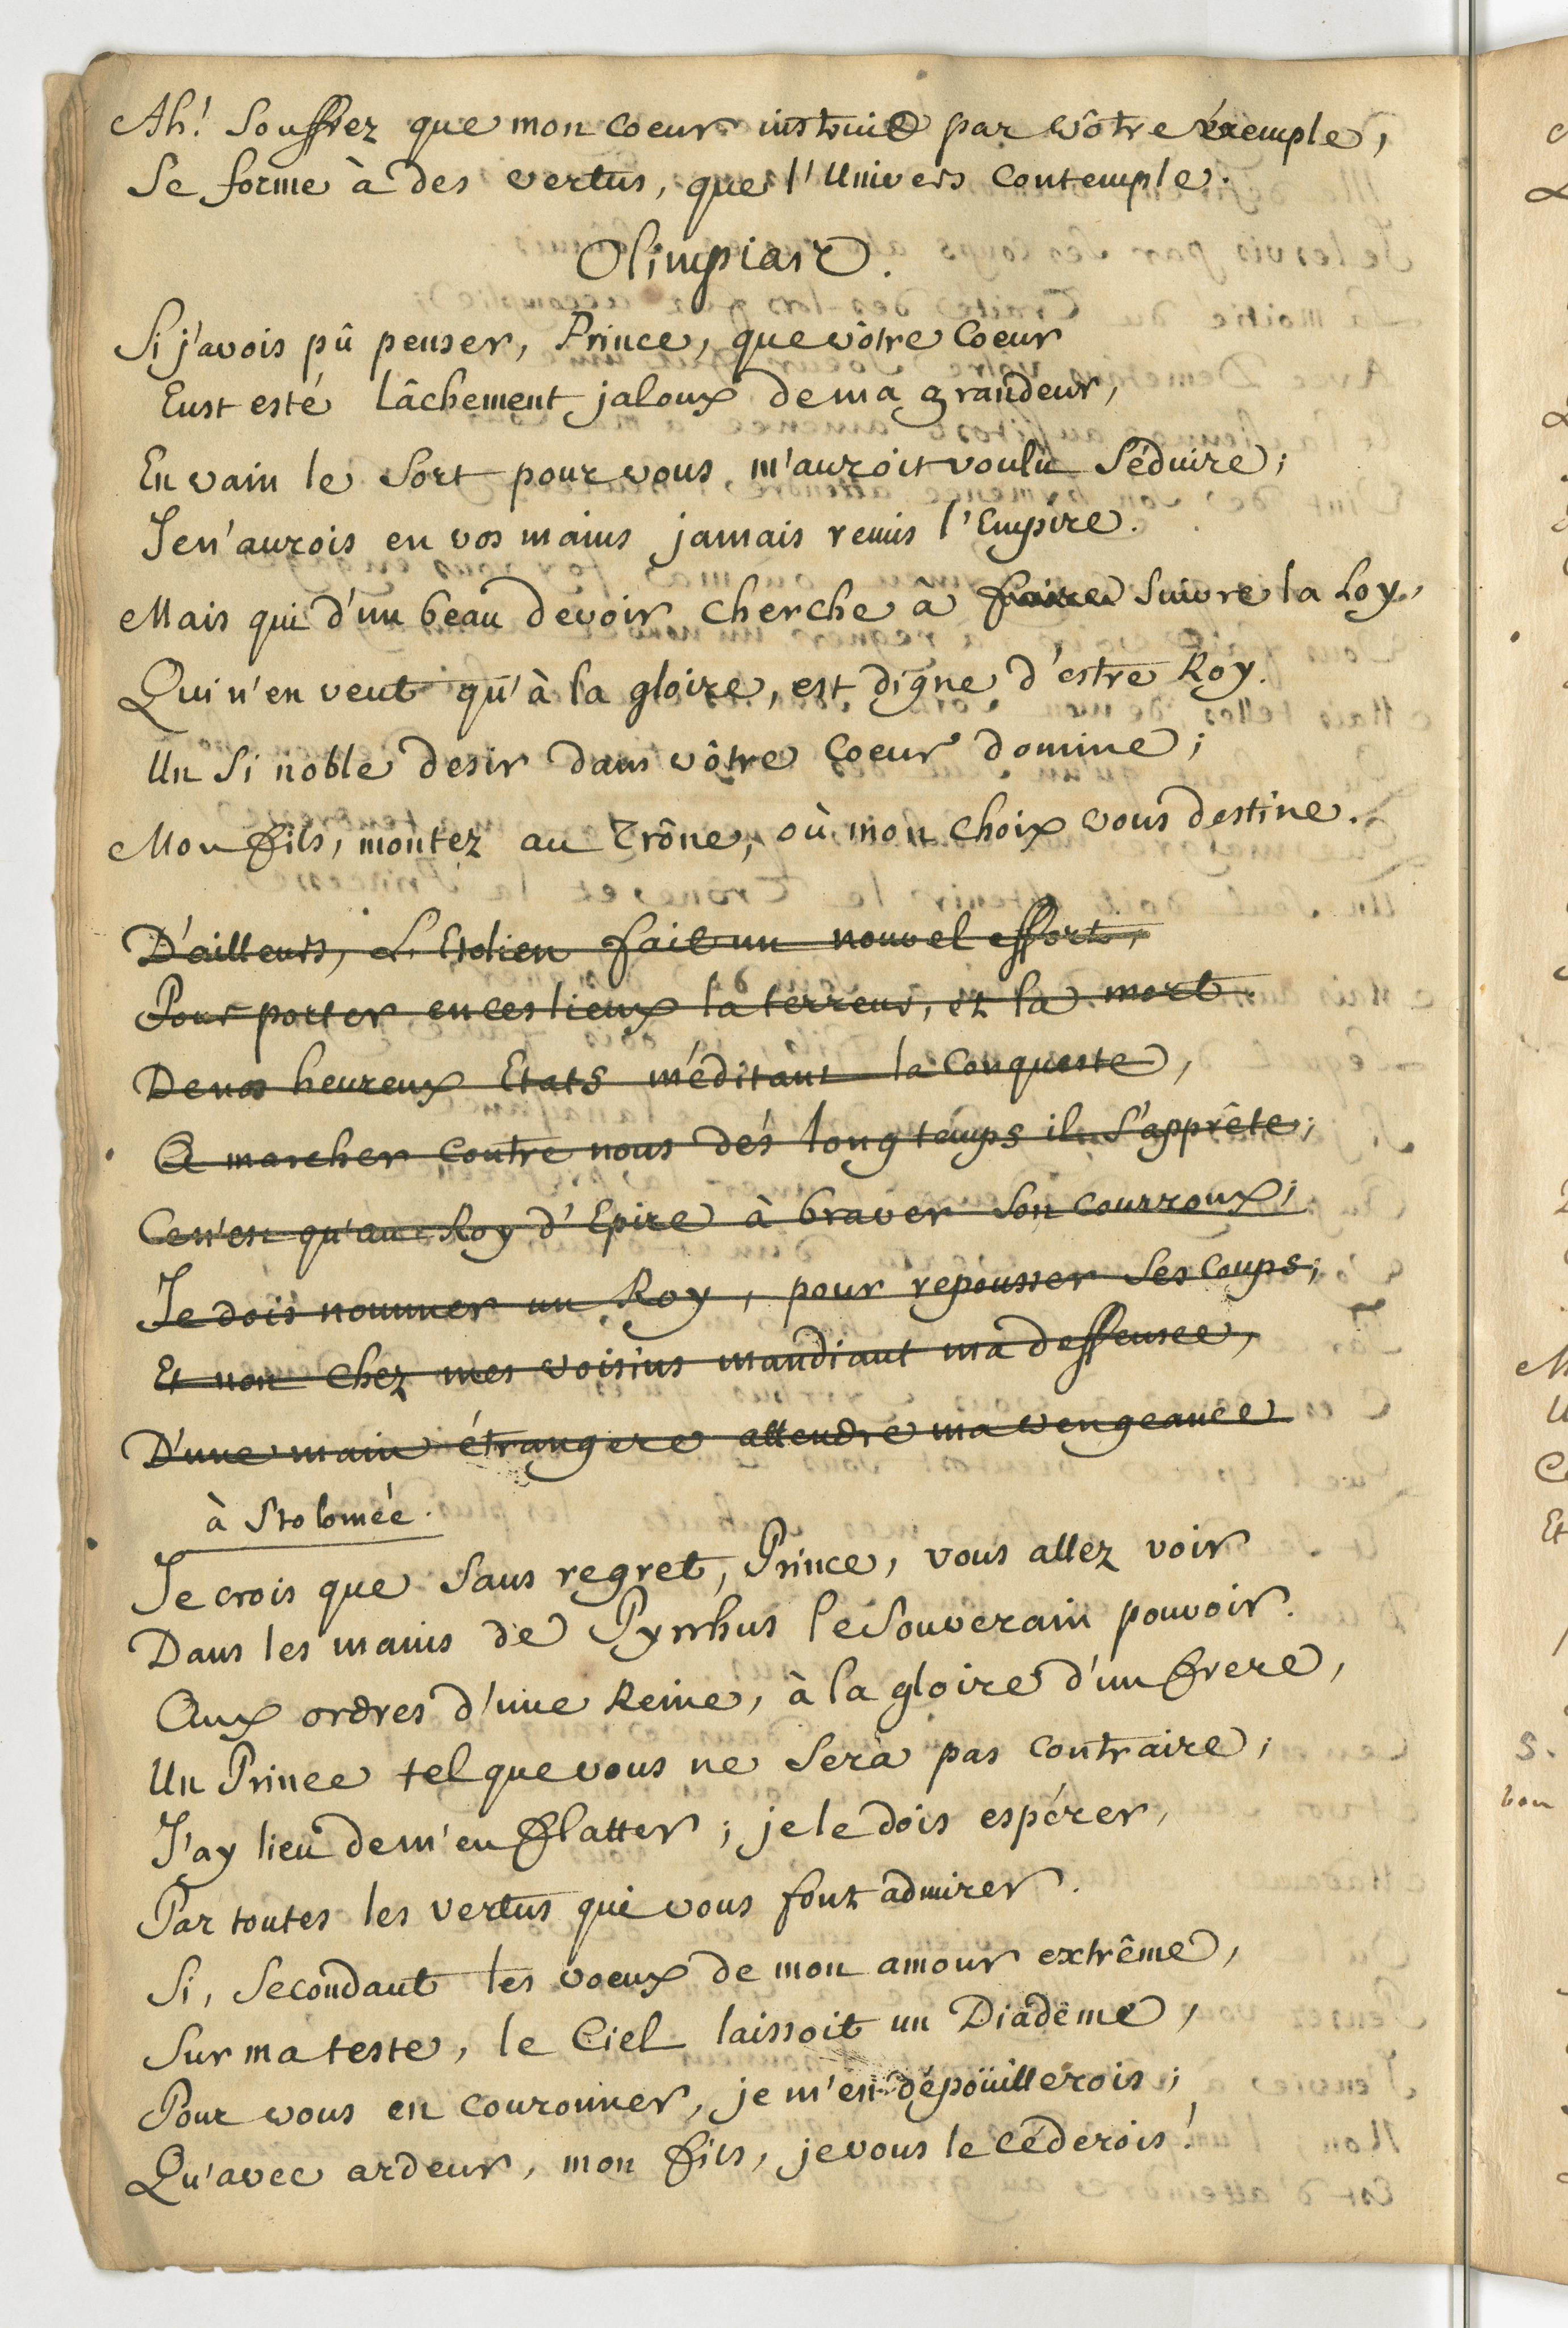 Ah! Souffrez que mon coeur instruit par vôtre éxemple,
Se forme à des vertus, que l'Univers contemple.
Olimpias.
Si j'avois pû penser, Prince, que vôtre Coeur
Eust esté lâchement jaloux de ma grandeur,
En vain le Sort pour vous m'auroit voulu Séduire;
Je n'aurois en vos mains jamais remis l'Empire.
Mais qui d'un beau devoir cherche à faire Suivre la Loy,
Qui n'en veut qu'à la gloire, est digne d'estre Roy.
Un Si noble desir dans vôtre Coeur domine;
Mon fils, montez au Trône, où mon choix vous destine.
D'ailleurs, L'Etolien fait un nouvel effort,
Pour porter en ces lieux la terreur, et la mort
De nos heureux Etats méditant la Conqueste,
A marcher contre nous dés long temps il S'apprête;
Ce n'est qu'au Roy d'Epire à braver Son courroux;
Je dois nommer un Roy, pour repousser Ses Coups;
Et non chez mes voisins mandiant ma deffensee,
D'une main étrangere attendre ma vengeance
à Ptolomée.
Je crois que Sans regret, Prince, vous allez voir
Dans les mains de Pyrrhus le Souverain pouvoir.
Aux ordres d'une Reine, à la gloire d'un frere,
Un Prince tel que vous ne Sera pas contraire;
J'ay lieu de m'en flatter; je le dois espérer,
Par toutes les vertus qui vous font admirer.
Si, Secondant les voeux de mon amour extrême,
Sur ma teste, le Ciel laissoit un Diadême,
Pour vous en couronner, je m'en dépoüillerois;
Qu'avec ardeur, mon fils, je vous le céderois!